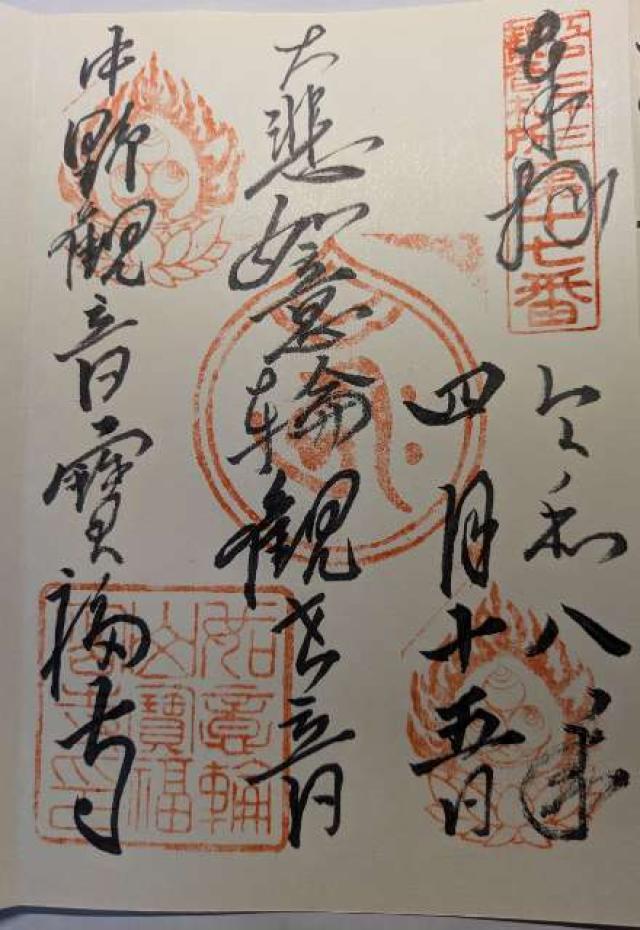 奉拝
第十七番
令和八年
四月十五日
大悲如意輪観世音
中野観音寶福寺
如意輪
山寶福
寺之印